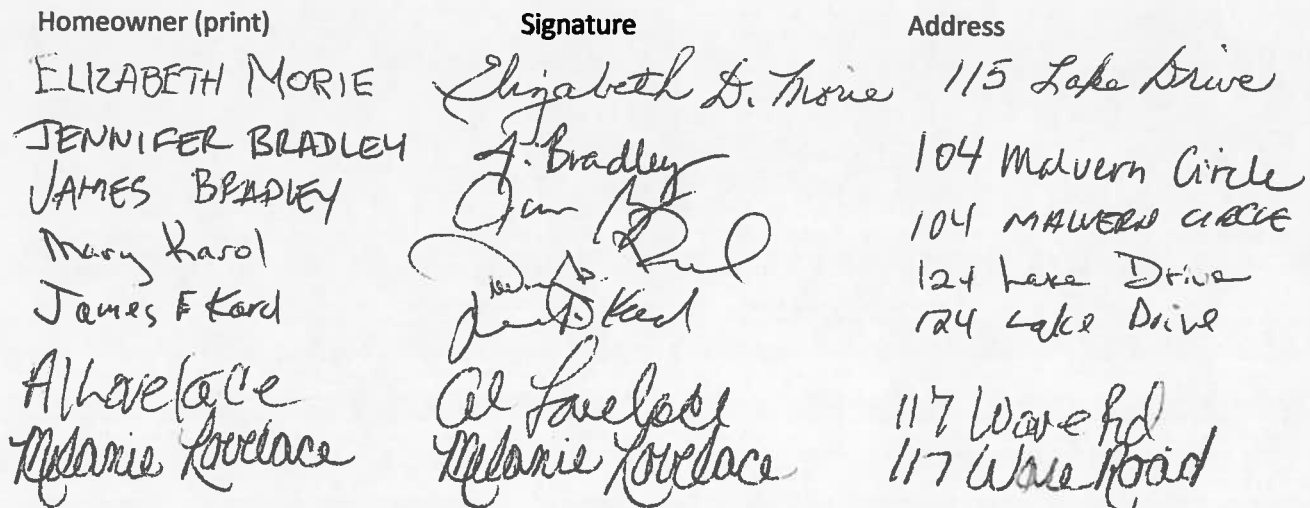 Homeowner (print) Signature Address
ELIZABETH MORIE Elizabeth D. Morie 115 Lake Drive
JENNIFER BRADLEY J. Bradley 104 Malvern Circle
JAMES BRADLEY 104 MALVERN CIRCLE
Mary Karol 124 Lake Drive
James F Karol 124 Lake Drive
Al Lovelace Al Lovelace 117 Ware Rd
Melanie Lovelace Melanie Lovelace 117 Ware Road